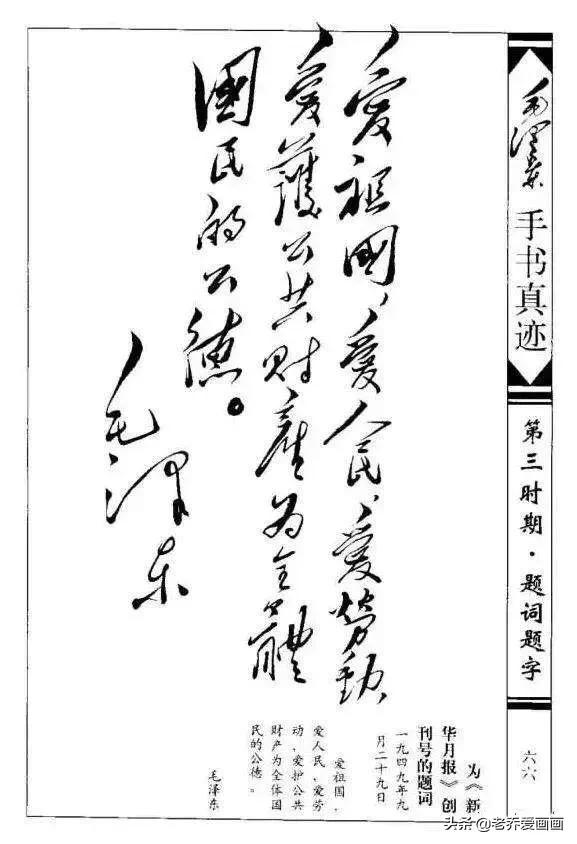 毛泽东 手书真迹
第三时期·题词题字
六六
愛祖國、愛人民、愛勞動、
愛護公共財產为全體
國民的公德。
毛泽东
为《新
华月报》创
刊号的题词
一九四九年九
月二十九日
爱祖国、
爱人民、爱劳
动、爱护公共
财产为全体国
民的公德。
毛泽东
头条@老乔爱画画